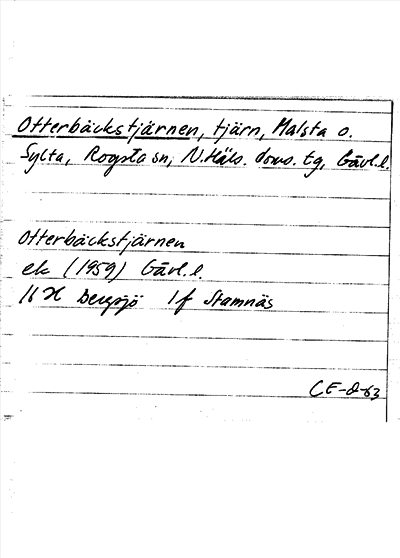 Otterbäckstjärnen, tjärn, Malsta o.
Sylta, Rogsta sn, N. Häls. doms. tg, Gävl.l.
Otterbäckstjärnen
ek (1959) Gävl.l.
16 H Bergsjö 1f Stamnäs
CE-2-63